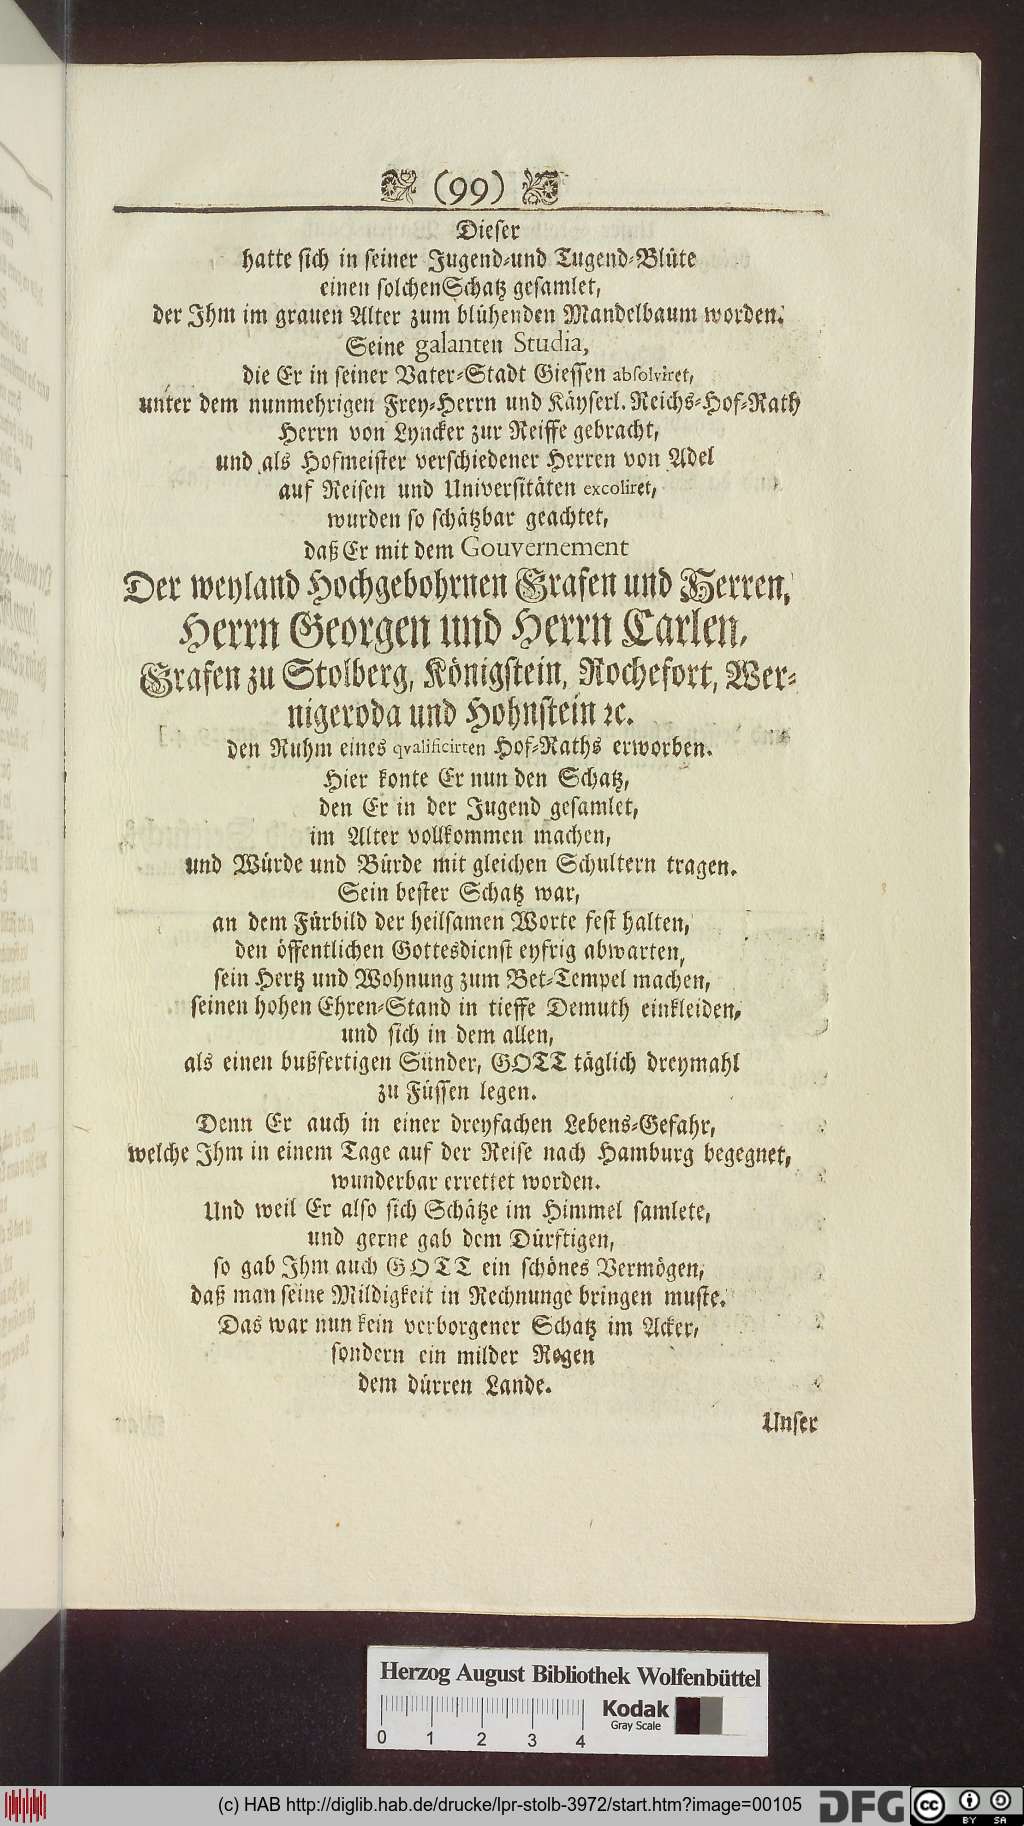 (99)
Dieser
hatte sich in seiner Jugend-und Tugend-Blüte
einen solchenSchatz gesamlet,
der Ihm im grauen Alter zum blühenden Mandelbaum worden.
Seine galanten Studia,
die Er in seiner Vater-Stadt Giessen absolviret,
unter dem nunmehrigen Frey-Herrn und Käyserl. Reichs-Hof-Rath
Herrn von Lyncker zur Reiffe gebracht,
und als Hofmeister verschiedener Herren von Adel
auf Reisen und Universitäten excoliret,
wurden so schätzbar geachtet,
daß Er mit dem Gouvernement
Der weyland Hochgebohrnen Grafen und Herren,
Herrn Georgen und Herrn Carlen,
Grafen zu Stolberg, Königstein, Rochefort, Wer-
nigeroda und Hohnstein ꝛc.
den Ruhm eines qvalificirten Hof-Raths erworben.
Hier konte Er nun den Schatz,
den Er in der Jugend gesamlet,
im Alter vollkommen machen,
und Würde und Bürde mit gleichen Schultern tragen.
Sein bester Schatz war,
an dem Fürbild der heilsamen Worte fest halten,
den öffentlichen Gottesdienst eyfrig abwarten,
sein Hertz und Wohnung zum Bet-Tempel machen,
seinen hohen Ehren-Stand in tieffe Demuth einkleiden,
und sich in dem allen,
als einen bußfertigen Sünder, GOTT täglich dreymahl
zu Füssen legen.
Denn Er auch in einer dreyfachen Lebens-Gefahr,
welche Ihm in einem Tage auf der Reise nach Hamburg begegnet,
wunderbar errettet worden.
Und weil Er also sich Schätze im Himmel samlete,
und gerne gab dem Dürftigen,
so gab Ihm auch GOTT ein schönes Vermögen,
daß man seine Mildigkeit in Rechnunge bringen muste.
Das war nun kein verborgener Schatz im Acker,
sondern ein milder Regen
dem dürren Lande.
Unser
Herzog August Bibliothek Wolfenbüttel
Kodak
Gray Scale
0 1 2 3 4
(c) HAB http://diglib.hab.de/drucke/lpr-stolb-3972/start.htm?image=00105
DFG
cc BY SA